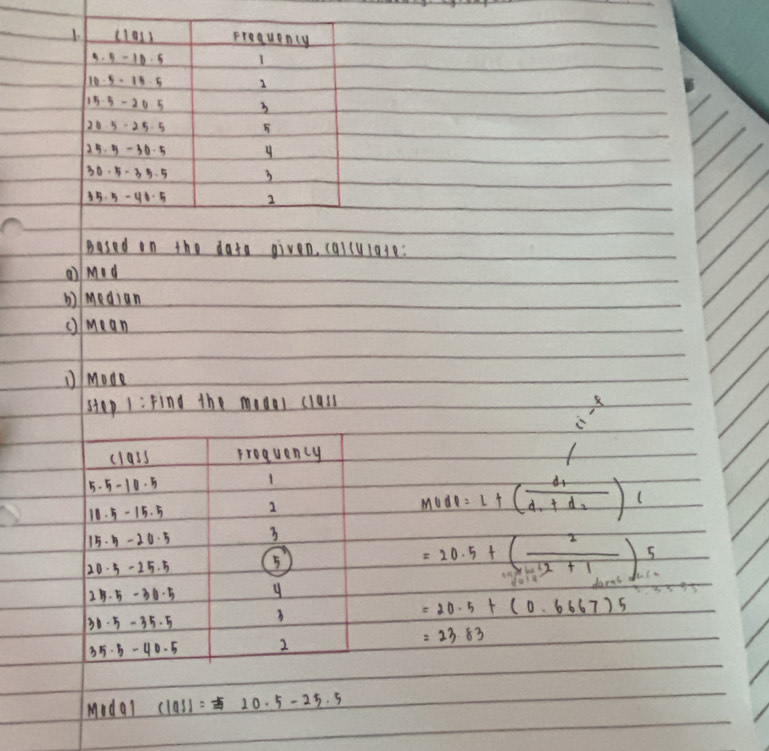 1. Class Frequency
5.5-10.5 1
10.5-15.5 2
15.5-20.5 3
20.5-25.5 5
25.5-30.5 4
30.5-35.5 3
35.5-40.5 2
Based on the data given, calculate:
a) Mod
b) Median
c) Mean
i) Mode
Step 1: Find the modal class
Class Frequency
5.5-10.5 1
10.5-15.5 2
15.5-20.5 3
20.5-25.5 5
25.5-30.5 4
30.5-35.5 3
35.5-40.5 2
Mode = L + (d₁ / d₁ + d₂) C
= 20.5 + (2 / 2 + 1) 5
= 20.5 + (0.6667) 5
= 23.83
Modal class = 20.5-25.5